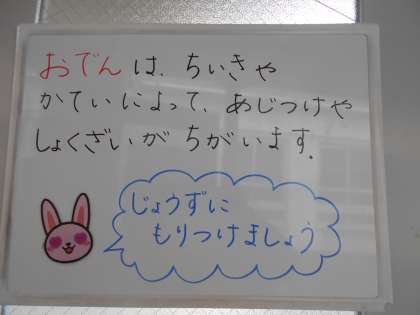 おでんは、ちいきや
かていによって、あじつけや
しょくざいがちがいます。
じょうずに
もりつけましょう